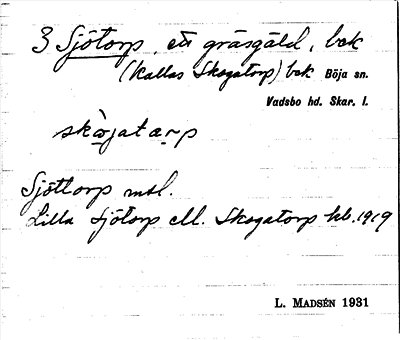 3 Sjötorp, ett gräsgäld, bek
(kallas Skogatorp) bek Böja sn.
Vadsbo hd. Skar. l.
skògatarp
Sjöttorp msl.
Lilla Sjötorp ell. Skogatorp kb. 1919
L. MADSÉN 1931